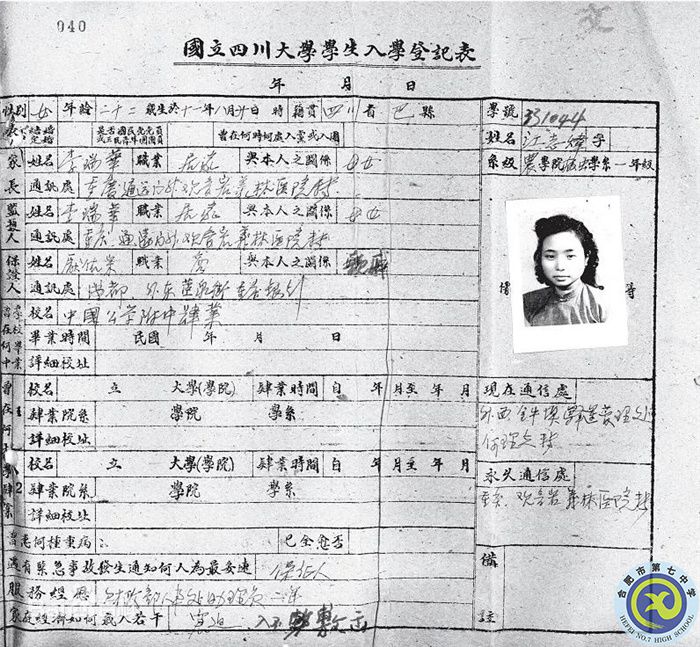 040
國立四川大學學生入學登記表
年 月 日
性別 女 年齡 二十二 歲生於十一年八月廿日 時 籍貫 四川 省 巴 縣
學號 331044
曾在何時何處入黨或入團
姓名 江志煒
系級 農學院 學系一年級
家長 姓名 李瑞華 職業 與本人之關係 母女
通訊處 重慶通遠門外觀音岩義林医院轉
監護人 姓名 李瑞華 職業 與本人之關係 母女
通訊處 重慶通遠門外觀音岩義林医院轉
保證人 姓名 職業 與本人之關係
通訊處 成都
校名 中國公学附中肄業
畢業時間 民國 年 月 日
詳細校址
校名 立 大學(學院) 肄業時間 自 年 月至 年 月
肄業院系 學院 學系
詳細校址
校名 立 大學(學院) 肄業時間 自 年 月至 年 月
肄業院系 學院 學系
詳細校址
曾患何種重病 已全愈否
遇有緊急事故發生通知何人為最妥速 保証人
服務經歷 財政部
家庭經濟如何歲入若干
像
現在通信處
外西
永久通信處
重慶觀音岩義林医院轉
備註
合肥市第七中学
HEFEI NO.7 HIGH SCHOOL